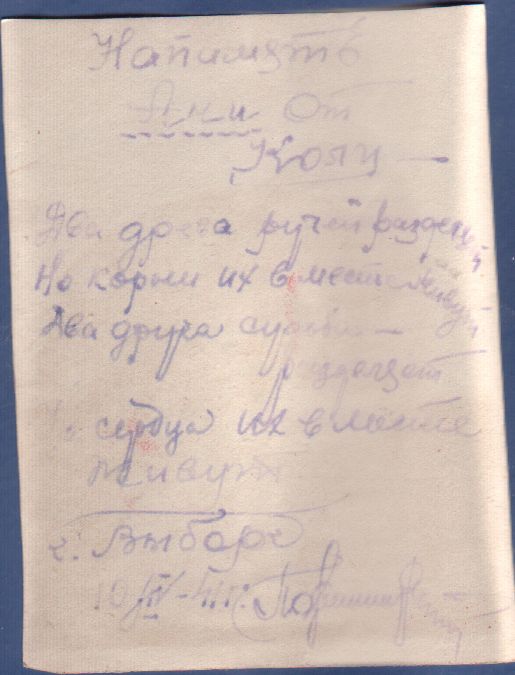 Напамять
Ани от
Коли
Два древа ручей разделяет
Но корни их вместе живут
Два друга судьба
раздел
Но сердца их вместе
живут
г. Выборг
10/IV-41 г.